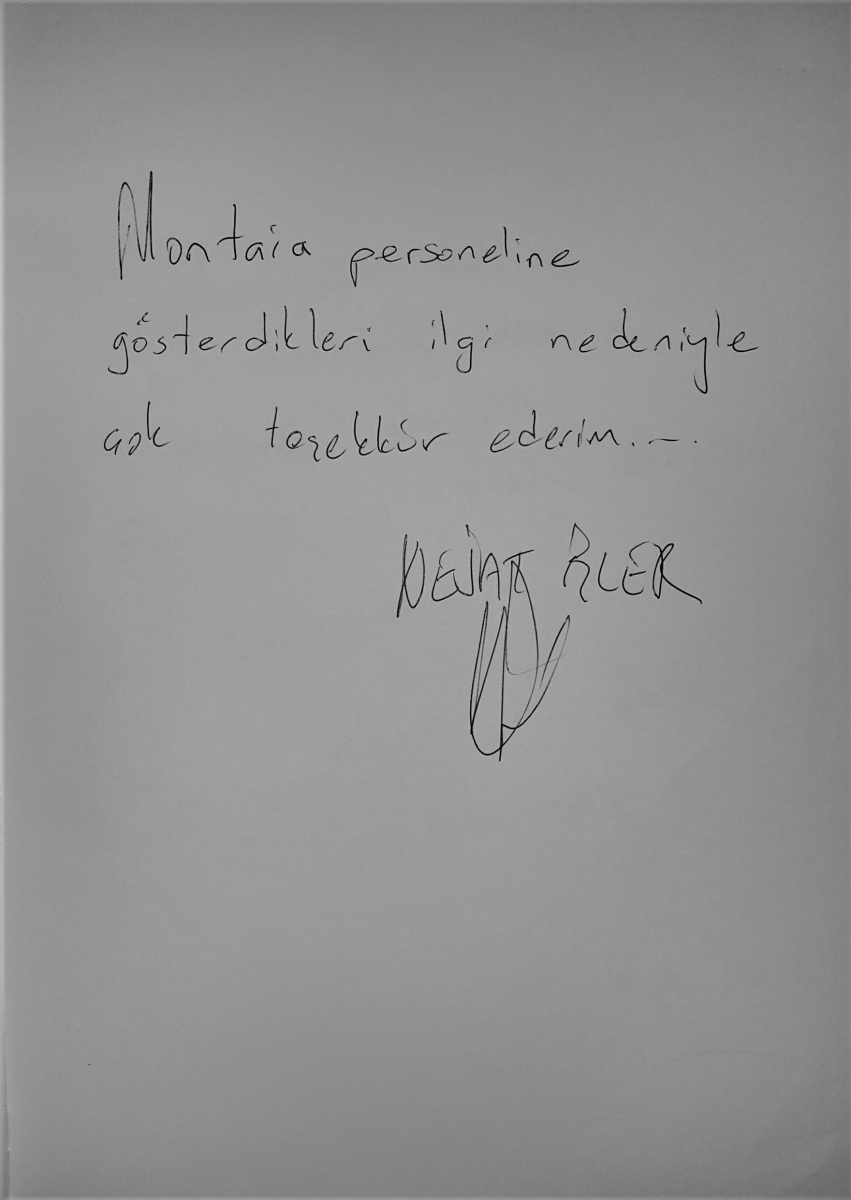 Montaia personeline
gösterdikleri ilgi nedeniyle
çok teşekkür ederim. —.
NEJAT İŞLER